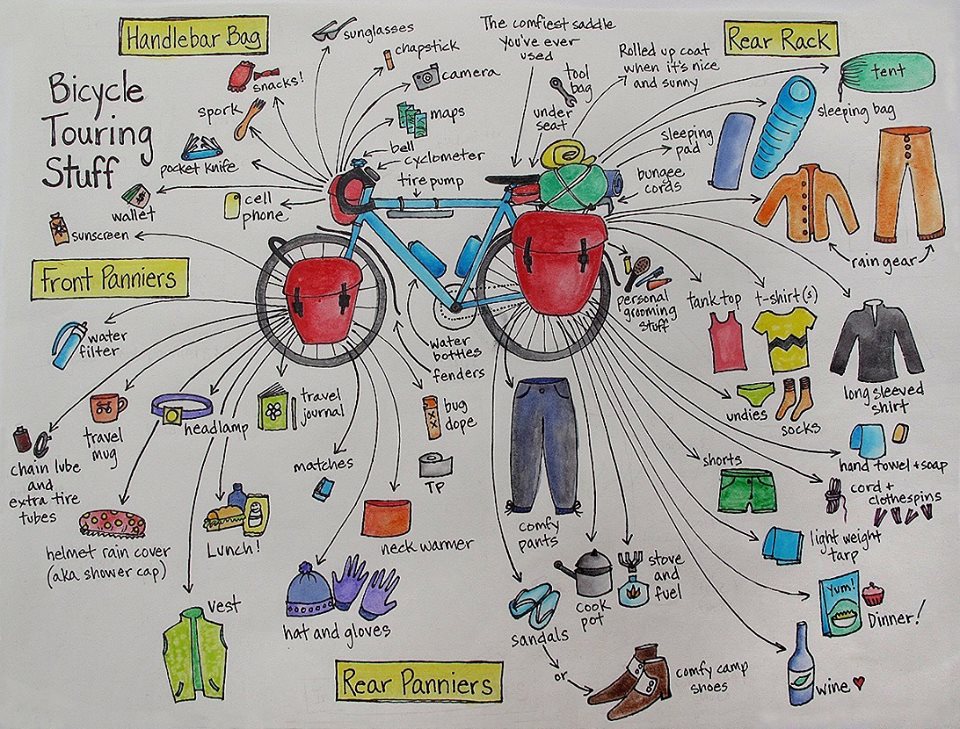 Handlebar Bag
sunglasses
chapstick
camera
maps
bell
cyclometer
tire pump
snacks!
spork
pocket knife
wallet
cell
phone
sunscreen
Bicycle
Touring
Stuff
The comfiest saddle
you've ever
used
tool
bag
under
seat
Rolled up coat
when it's nice
and sunny
Rear Rack
tent
sleeping bag
sleeping
pad
bungee
cords
rain gear
Front Panniers
water
filter
chain lube
and
extra tire
tubes
travel
mug
headlamp
travel
journal
helmet rain cover
(aka shower cap)
Lunch!
matches
neck warmer
vest
hat and gloves
water
bottles
fenders
bug
dope
TP
Rear Panniers
personal
grooming
stuff
tank top
t-shirt(s)
long sleeved
shirt
undies
socks
hand towel + soap
cord +
clothespins
shorts
light weight
tarp
Yum!
Dinner!
wine
comfy
pants
cook
pot
stove
and
fuel
sandals
or
comfy camp
shoes